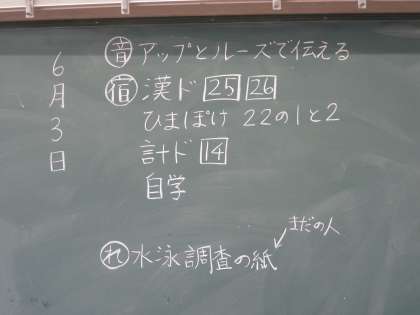 6月3日
㊟音 アップとルーズで伝える
宿 漢ド 25 26
ひまぽけ 22の1と2
計ド 14
自学
まだの人
れ 水泳調査の紙